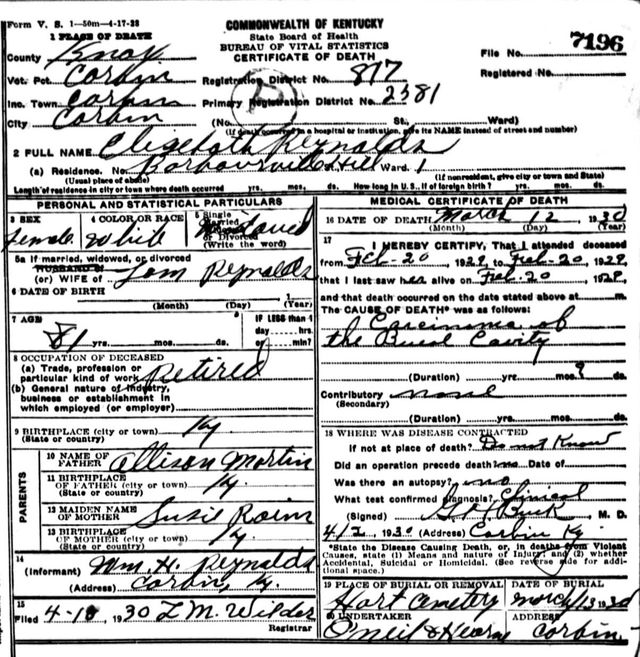 Form V. S. 1-50m-4-17-28
1 PLACE OF DEATH
COMMONWEALTH OF KENTUCKY
State Board of Health
BUREAU OF VITAL STATISTICS
CERTIFICATE OF DEATH
File No. 7196
Registered No.
County Knox
Vot. Pct. Corbin
Registration District No. 817
Inc. Town Corbin
Primary Registration District No. 2381
City Corbin (No. St., Ward)
(If death occurred in a hospital or institution, give its NAME instead of street and number)
2 FULL NAME Elizabeth Reynolds
(a) Residence. No. Barbourville Hill Ward. 1
(Usual place of abode) (If nonresident, give city or town and State)
Length of residence in city or town where death occurred yrs. mos. ds. How long in U. S., if of foreign birth? yrs. mos. ds.
PERSONAL AND STATISTICAL PARTICULARS
3 SEX Female
4 COLOR OR RACE White
5 Single Married Widowed or Divorced (Write the word)
5a If married, widowed, or divorced
HUSBAND of
(or) WIFE of Tom Reynolds
6 DATE OF BIRTH
(Month) (Day) (Year)
7 AGE 81 yrs. mos. ds.
IF LESS than 1
day hrs.
or min?
8 OCCUPATION OF DECEASED
(a) Trade, profession or
particular kind of work Retired
(b) General nature of industry,
business or establishment in
which employed (or employer)
9 BIRTHPLACE (city or town) Ky
(State or country)
PARENTS
10 NAME OF
FATHER Allison Martin
11 BIRTHPLACE
OF FATHER (city or town) Ky
(State or country)
12 MAIDEN NAME
OF MOTHER Susie
13 BIRTHPLACE
OF MOTHER (city or town) Ky
(State or country)
14
(Informant) Wm. H. Reynolds
(Address) Corbin, Ky.
15
Filed 4-10, 1930 L. M. Wilder
Registrar
MEDICAL CERTIFICATE OF DEATH
16 DATE OF DEATH March 12 1930
(Month) (Day) (Year)
17
I HEREBY CERTIFY, That I attended deceased
from Feb-20, 1929, to Feb-20, 1929,
that I last saw her alive on Feb-20, 1929,
and that death occurred on the date stated above at m.
The CAUSE OF DEATH* was as follows:
Carcinoma of
the Cavity
(Duration) yrs. 9 mos. ds.
Contributory none
(Secondary)
(Duration) yrs. mos. ds.
18 WHERE WAS DISEASE CONTRACTED
If not at place of death? Do not Know
Did an operation precede death? no Date of
Was there an autopsy? no
What test confirmed diagnosis? Clinical
(Signed) M. D.
4/2, 1930 (Address) Corbin Ky
*State the Disease Causing Death, or, in deaths from Violent
Causes, state (1) Means and nature of Injury; and (2) whether
Accidental, Suicidal or Homicidal. (See reverse side for addi-
tional space.)
19 PLACE OF BURIAL OR REMOVAL Hart Cemetery
DATE OF BURIAL March 13 1930
20 UNDERTAKER O'Neil & Hearn
ADDRESS Corbin